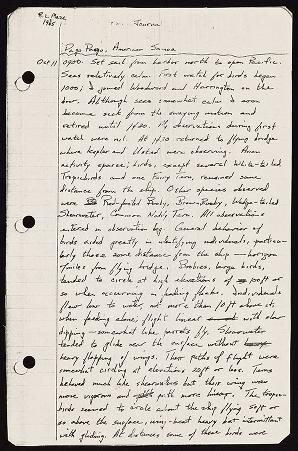 1965
Journal
Pago Pago, American Samoa
Oct 11 0900. Set sail from harbor north to open Pacific.
Seas relatively calm. First watch for birds began
1000; I joined Woodward and Harrington on the
deck. Although seas somewhat calm I soon
became seek from the swaying motion and
retired until 1430. My observations during first
watch were nil. At 1430 returned to flying bridge
where Kepler and were observing. Avian
activity sparse; birds, except several White-tailed
Tropicbirds and one Fairy Tern, remained some
distance from the ship. Other species observed
were Red-footed Booby, Brown Booby, Wedge-tailed
Shearwater, Common Noddy Tern. All observations
entered in observation log. General behavior of
birds aided greatly in identifying individuals, particu-
larly those some distance from the ship — horizon
7 miles from flying bridge. Boobies, large birds,
tended to circle at high elevations of 50 ft or
so when occurring in feeding flocks. Individuals
flew low to water, not more than 10 ft above it;
when feeding alone; flight linear with slow
dipping — somewhat like parrots fly. Shearwater
tended to glide near the surface without
heavy flapping of wings. Their paths of flight were
somewhat circling at elevations 50 ft or less. Terns
behaved much like shearwaters but their wing was
more vigorous and path more linear. The tropic-
birds seemed to circle about the ship flying 50 ft or
so above the surface; wing-beat heavy but intermittent
with gliding. At distances some of these birds were